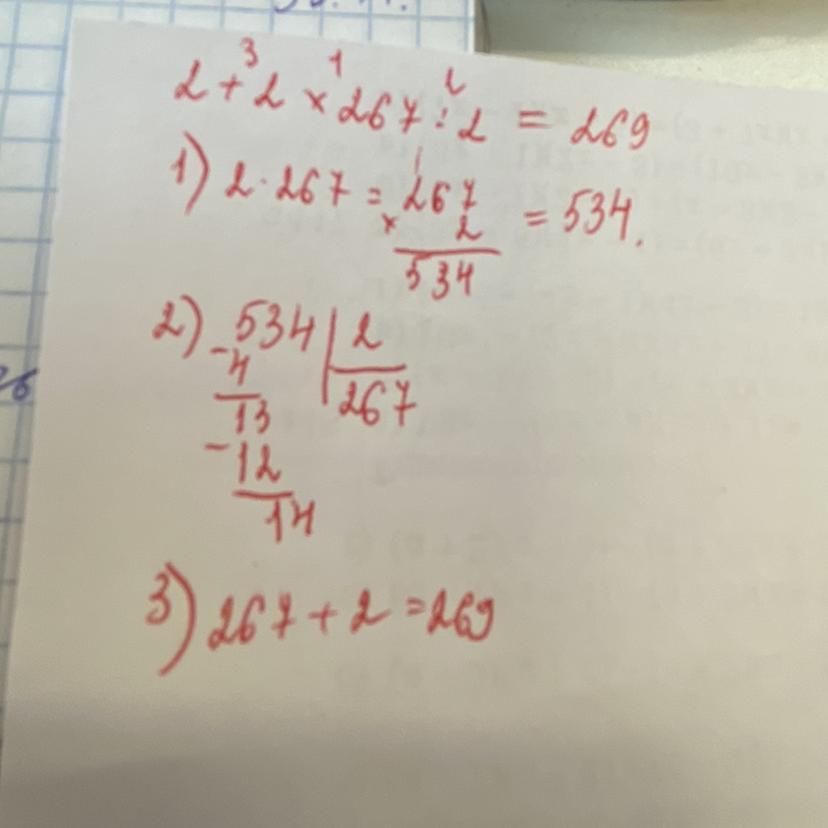 3 1 2
2 + 2 × 267 : 2 = 269
1) 2 · 267 = 267 = 534.
× 2
534
2) 534 | 2
- 4 267
13
- 12
14
3) 267 + 2 = 269